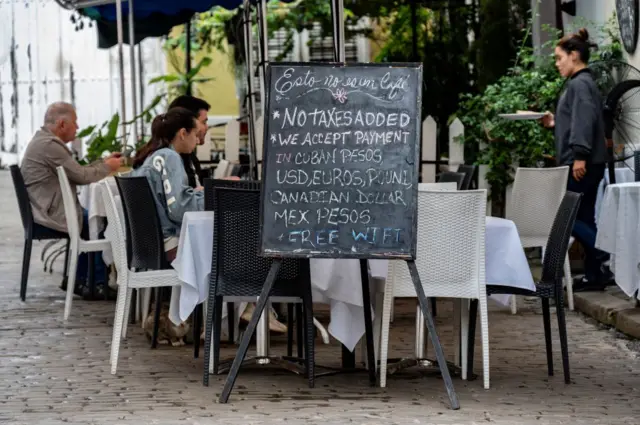 Esto no es un Café
* NO TAXES ADDED
* WE ACCEPT PAYMENT
IN CUBAN PESOS
USD, EUROS, POUND
CANADIAN DOLLAR
MEX PESOS
+ FREE WIFI